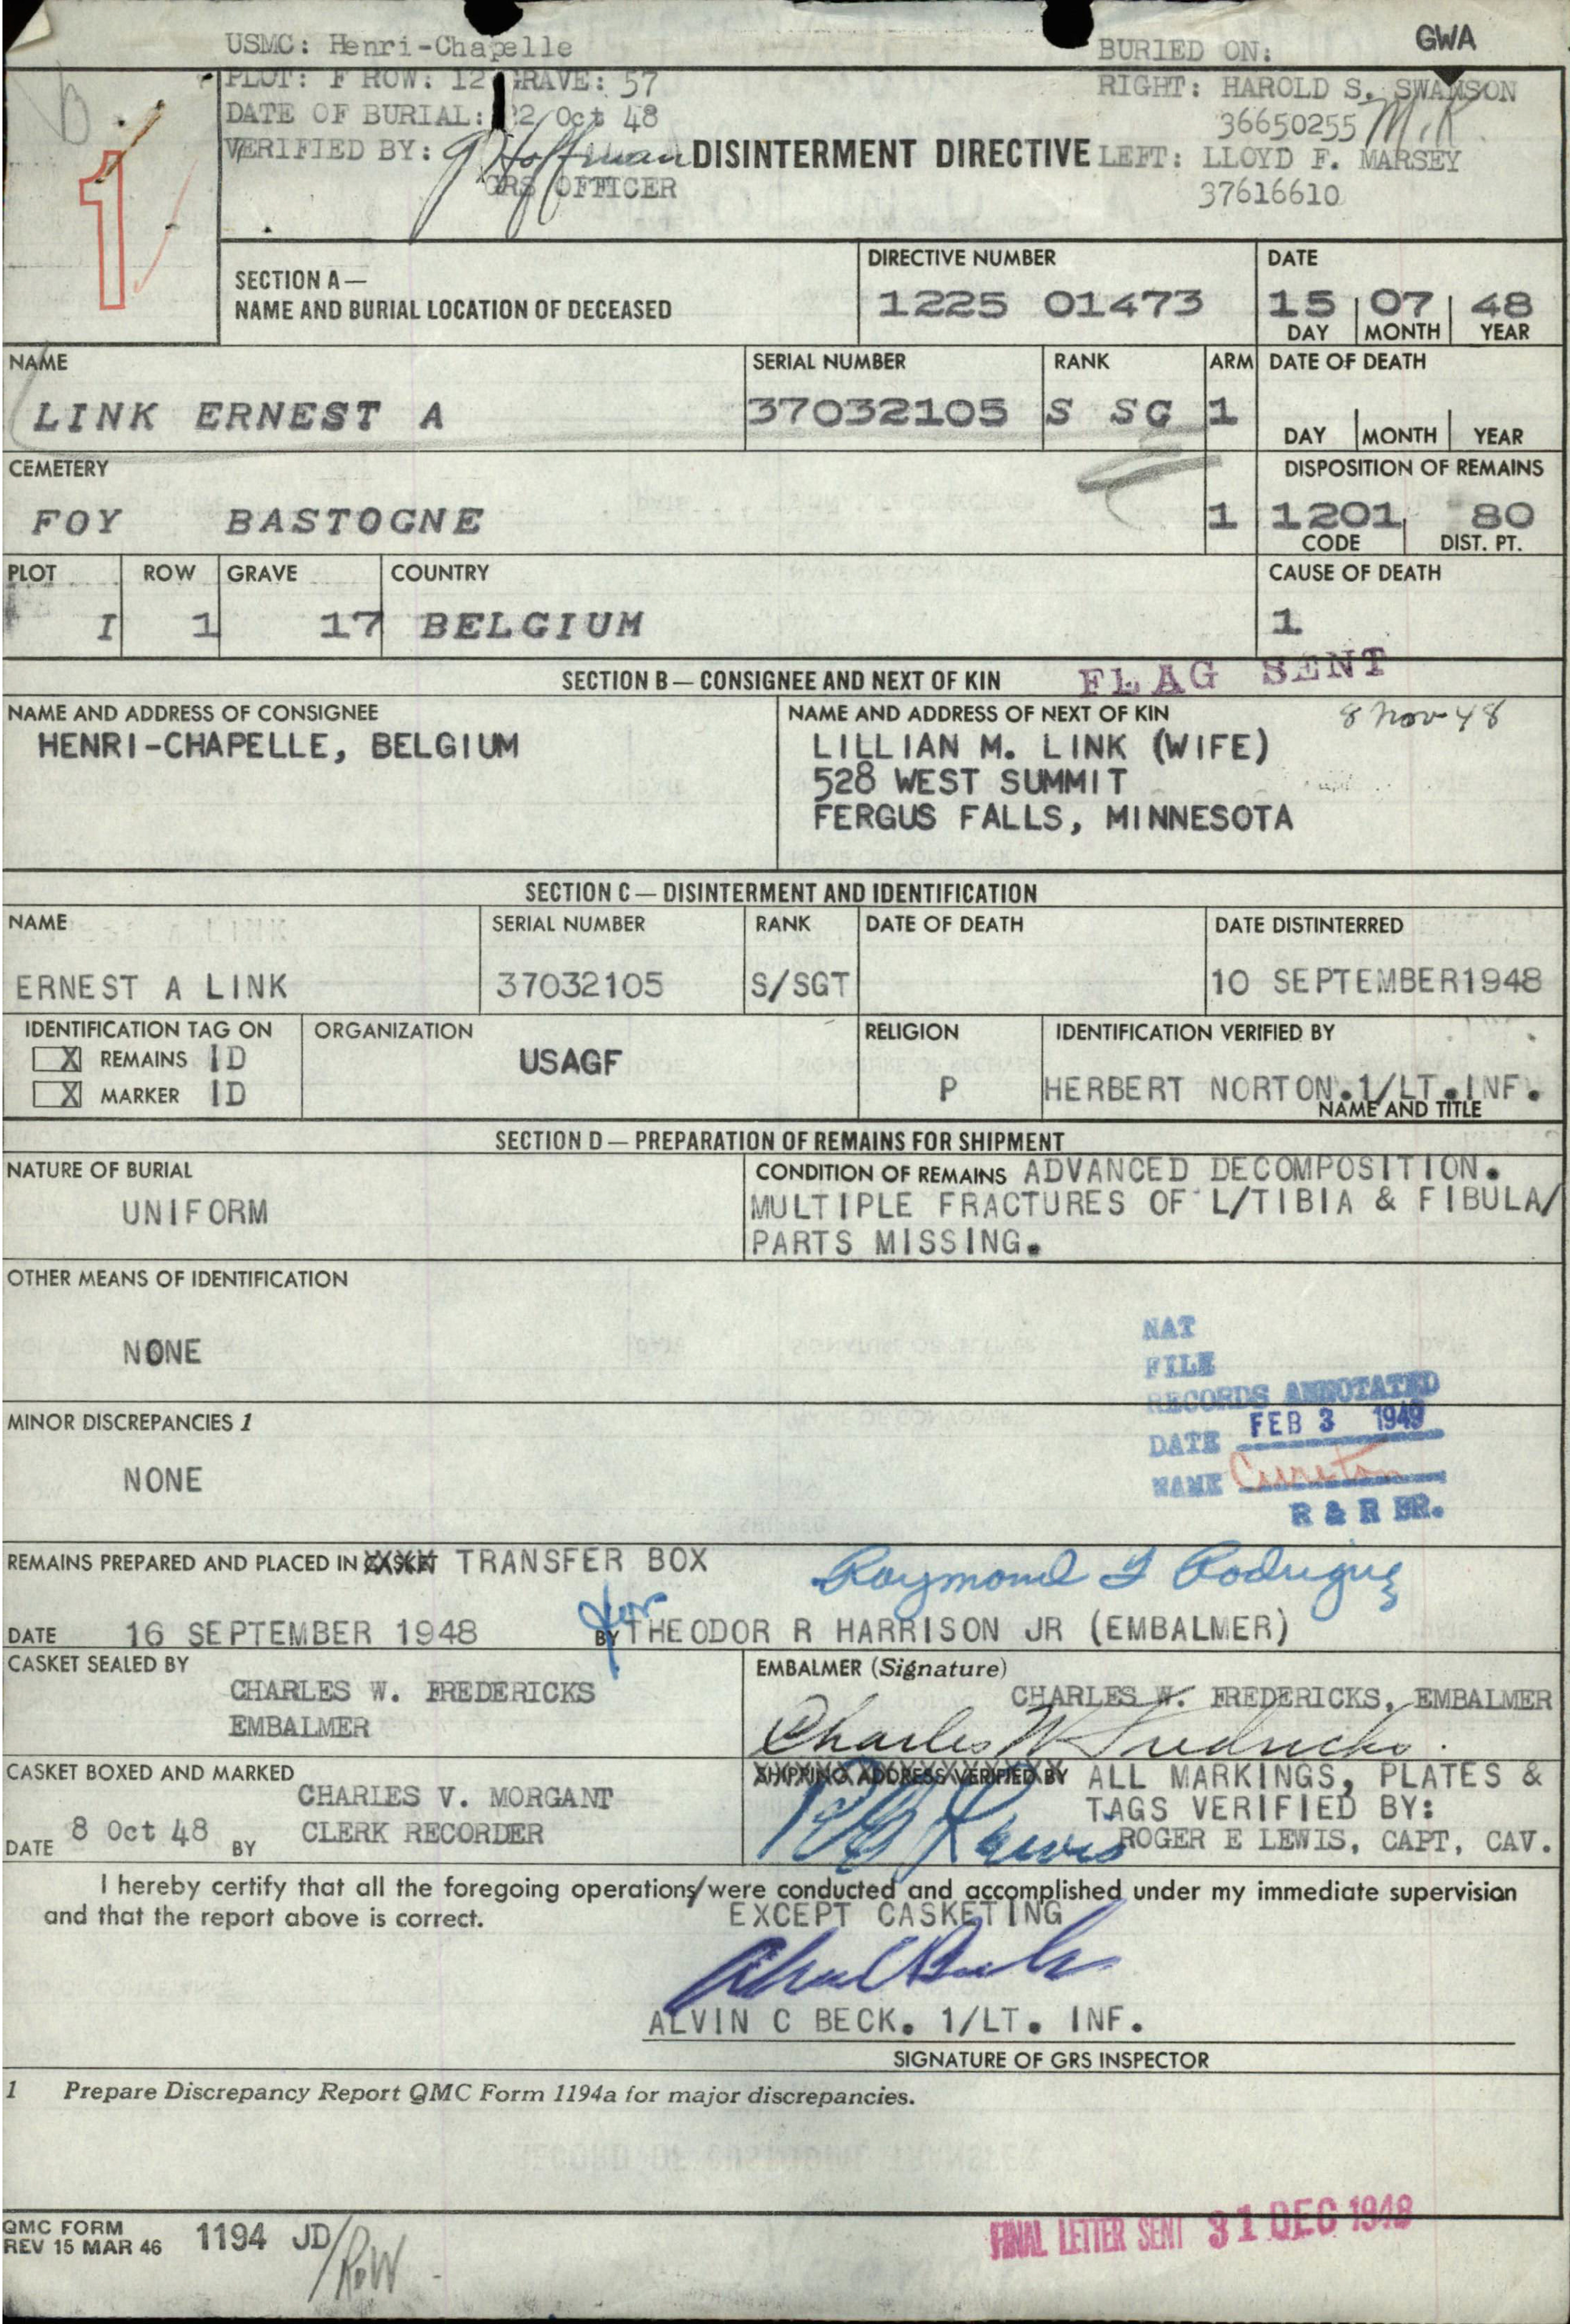 USMC: Henri-Chapelle
BURIED ON:
GWA
PLOT: F ROW: 12 GRAVE: 57
RIGHT: HAROLD S. SWANSON
DATE OF BURIAL: 22 Oct 48
36650255
VERIFIED BY: Hoffman
DISINTERMENT DIRECTIVE
LEFT: LLOYD F. MARSEY
GRS OFFICER
37616610
1
SECTION A—
NAME AND BURIAL LOCATION OF DECEASED
DIRECTIVE NUMBER
1225 01473
DATE
15 07 48
DAY MONTH YEAR
NAME
LINK ERNEST A
SERIAL NUMBER
37032105
RANK
S SG
ARM
1
DATE OF DEATH
DAY MONTH YEAR
CEMETERY
FOY BASTOGNE
1
DISPOSITION OF REMAINS
1201 80
CODE DIST. PT.
PLOT
I
ROW
1
GRAVE
17
COUNTRY
BELGIUM
CAUSE OF DEATH
1
SECTION B — CONSIGNEE AND NEXT OF KIN
FLAG SENT
NAME AND ADDRESS OF CONSIGNEE
HENRI-CHAPELLE, BELGIUM
NAME AND ADDRESS OF NEXT OF KIN
8 Nov 48
LILLIAN M. LINK (WIFE)
528 WEST SUMMIT
FERGUS FALLS, MINNESOTA
SECTION C — DISINTERMENT AND IDENTIFICATION
NAME
ERNEST A LINK
SERIAL NUMBER
37032105
RANK
S/SGT
DATE OF DEATH
DATE DISTINTERRED
10 SEPTEMBER1948
IDENTIFICATION TAG ON
X REMAINS ID
X MARKER ID
ORGANIZATION
USAGF
RELIGION
P
IDENTIFICATION VERIFIED BY
HERBERT NORTON.1/LT.INF.
NAME AND TITLE
SECTION D — PREPARATION OF REMAINS FOR SHIPMENT
NATURE OF BURIAL
UNIFORM
CONDITION OF REMAINS ADVANCED DECOMPOSITION.
MULTIPLE FRACTURES OF L/TIBIA & FIBULA/
PARTS MISSING.
OTHER MEANS OF IDENTIFICATION
NONE
NAT
FILE
RECORDS ANNOTATED
DATE FEB 3 1949
NAME Cureton
R & R BR.
MINOR DISCREPANCIES 1
NONE
REMAINS PREPARED AND PLACED IN CASKET TRANSFER BOX
Raymond Rodriguez
DATE 16 SEPTEMBER 1948
for
BY THEODOR R HARRISON JR (EMBALMER)
CASKET SEALED BY
CHARLES W. FREDERICKS
EMBALMER
EMBALMER (Signature)
CHARLES W. FREDERICKS, EMBALMER
Charles W Fredricks.
CASKET BOXED AND MARKED
CHARLES V. MORGANT
DATE 8 Oct 48 BY CLERK RECORDER
SHIPPING ADDRESS VERIFIED BY ALL MARKINGS, PLATES &
TAGS VERIFIED BY:
Lewis
ROGER E LEWIS, CAPT, CAV.
I hereby certify that all the foregoing operations/were conducted and accomplished under my immediate supervision
and that the report above is correct.
EXCEPT CASKETING
ALVIN C BECK. 1/LT. INF.
SIGNATURE OF GRS INSPECTOR
1 Prepare Discrepancy Report QMC Form 1194a for major discrepancies.
QMC FORM
REV 15 MAR 46
1194 JD/RW
FINAL LETTER SENT 31 DEC 1948